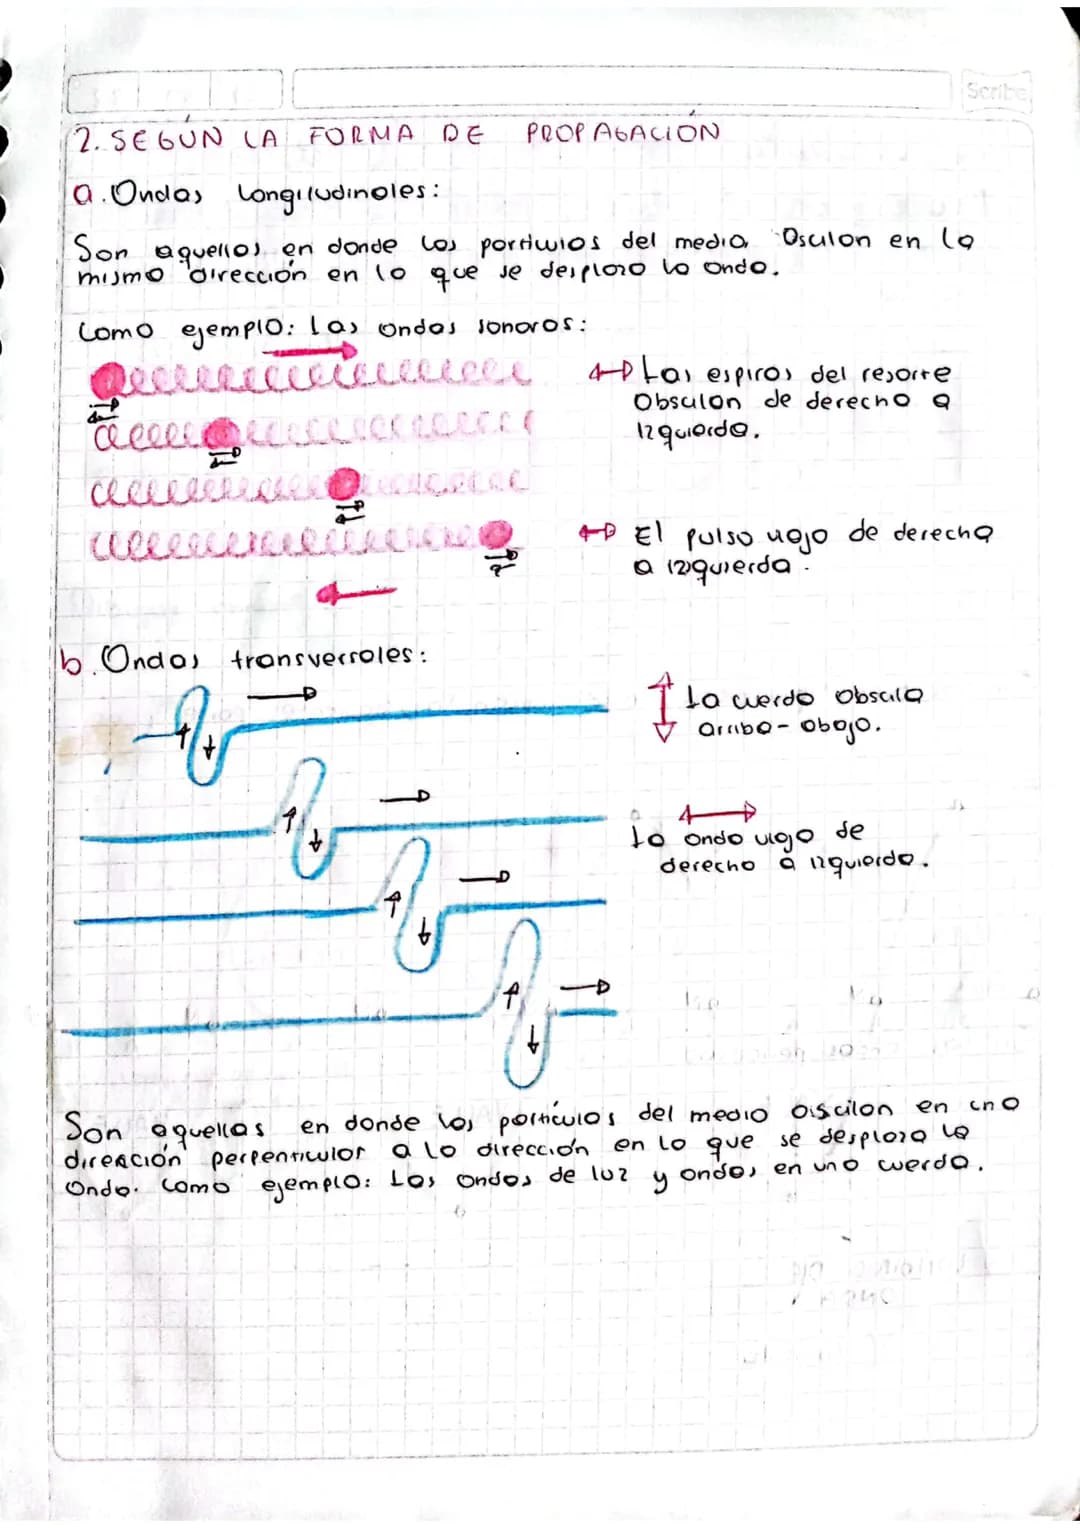 Scribe
2. SEGÚN LA FORMA DE PROPAGACIÓN
a. Ondas Longitudinales:
Son aquellos en donde los partículas del media Osculan en la
mismo dirección en la que se desplaza la onda.
Como ejemplo: Las ondas sonoras:
Las espiras del resorte
Obsulan de derecha a
Izquierda.
El pulso viaja de derecha
a izquierda.
b. Ondas transversales:
La cuerda Obscila
arriba - abajo.
La onda viaja de
derecha a izquierda.
Son aquellas en donde las partículas del medio oiscilan en una
dirección perpenticular a la dirección en la que se desplaza la
Onda. Como ejemplo: Las ondas de luz y ondas en una cuerda.